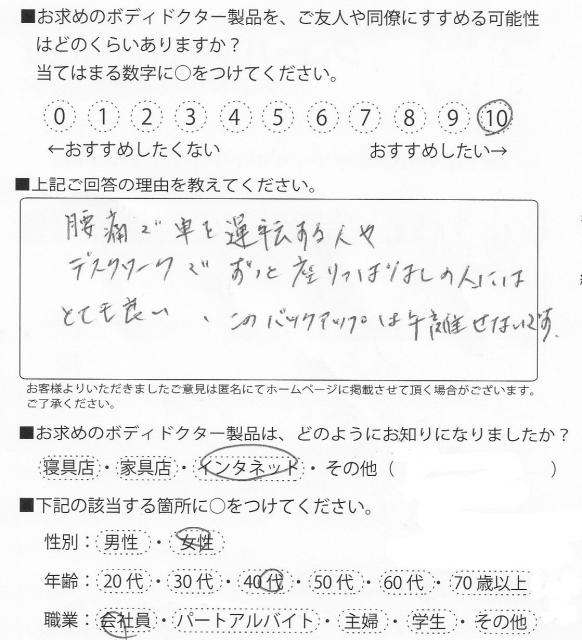 ■お求めのボディドクター製品を、ご友人や同僚にすすめる可能性
はどのくらいありますか？
当てはまる数字に○をつけてください。
0 1 2 3 4 5 6 7 8 9 10
←おすすめしたくない おすすめしたい→
■上記ご回答の理由を教えてください。
腰痛で車を運転する人や
デスクワークで ずっと座りっぱなしの人には
とても良い、このバックアップは手離せないです。
お客様よりいただきましたご意見は匿名にてホームページに掲載させて頂く場合がございます。
ご了承ください。
■お求めのボディドクター製品は、どのようにお知りになりましたか？
寝具店・家具店・インタネット・その他（ ）
■下記の該当する箇所に○をつけてください。
性別：男性・女性
年齢：20代・30代・40代・50代・60代・70歳以上
職業：会社員・パートアルバイト・主婦・学生・その他